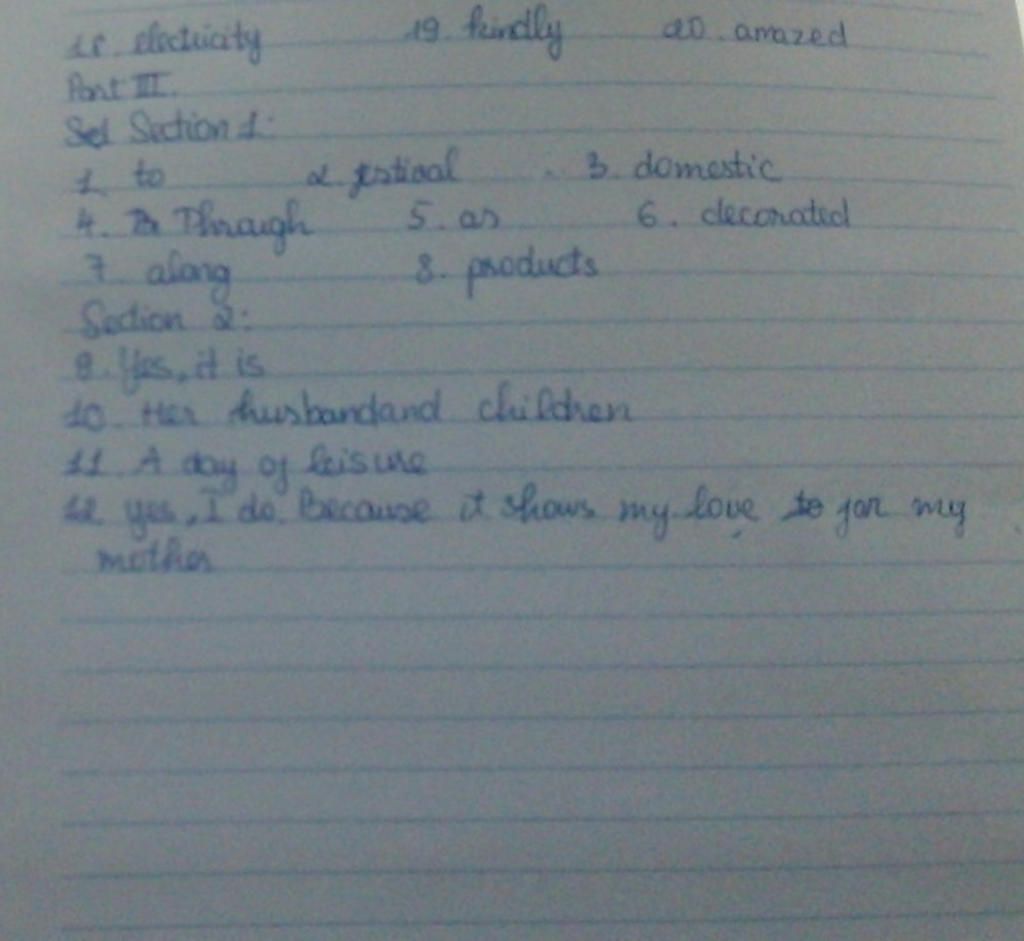 18. electricity 19. kindly 20. amazed
Part III.
Section 1:
1 to 2. festival 3. domestic
4. Through 5. as 6. decorated
7. along 8. products
Section 2:
9. Yes, it is
10. Her husband and children
11 A day of leisure
12 yes, I do. Because it shows my love to for my
mother